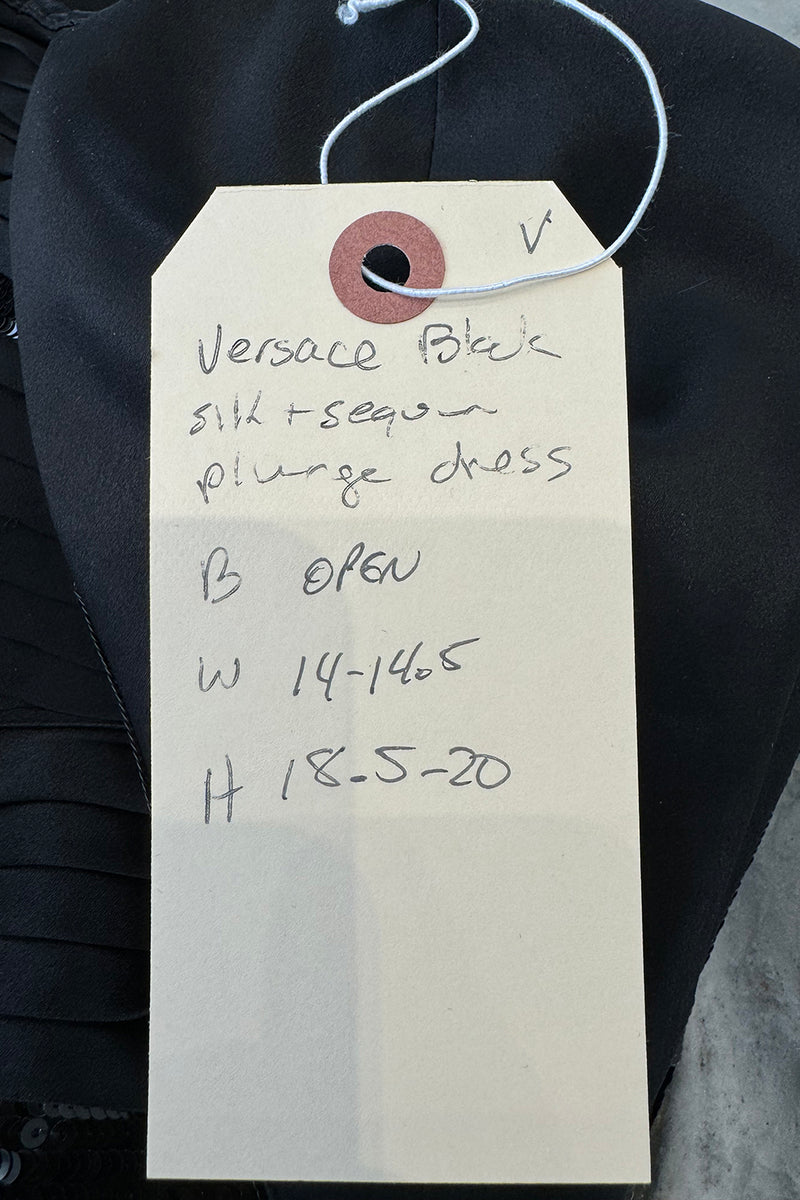 V
Versace Black
silk + sequin
plunge dress
B OPEN
W 14-14.5
H 18.5-20